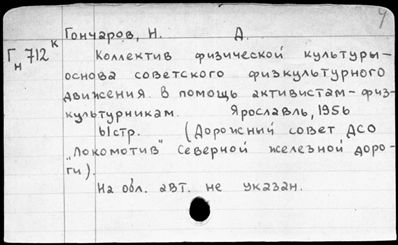 Гончаров, Н. А.
Гн 712к
Коллектив физической культуры-
основа советского физкультурного
движения. В помощь активистам-физ-
культурникам. Ярославль, 1956
61стр. (Дорожный совет ДСО
„Локомотив" Северной железной доро-
ги).
На обл. авт. не указан.